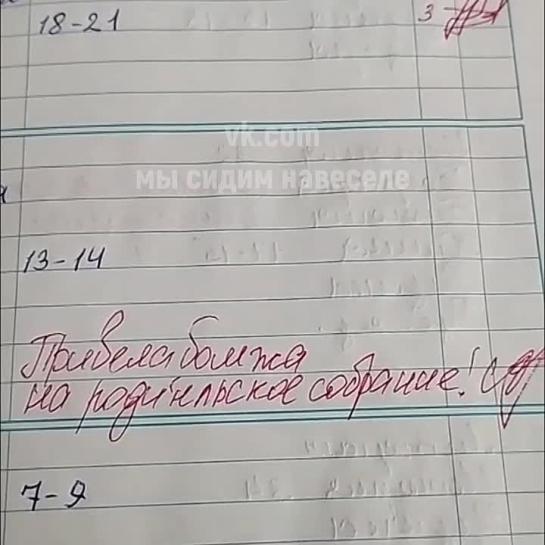 18-21
3
vk.com
мы сидим навеселе
13-14
Привела бомжа
на родительское собрание!
7-9